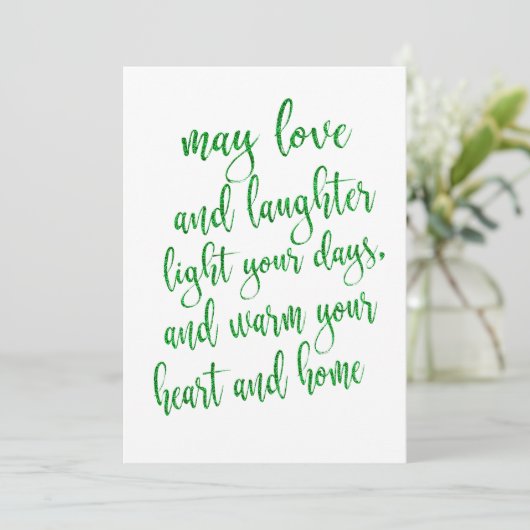 may love
and laughter
light your days,
and warm your
heart and home